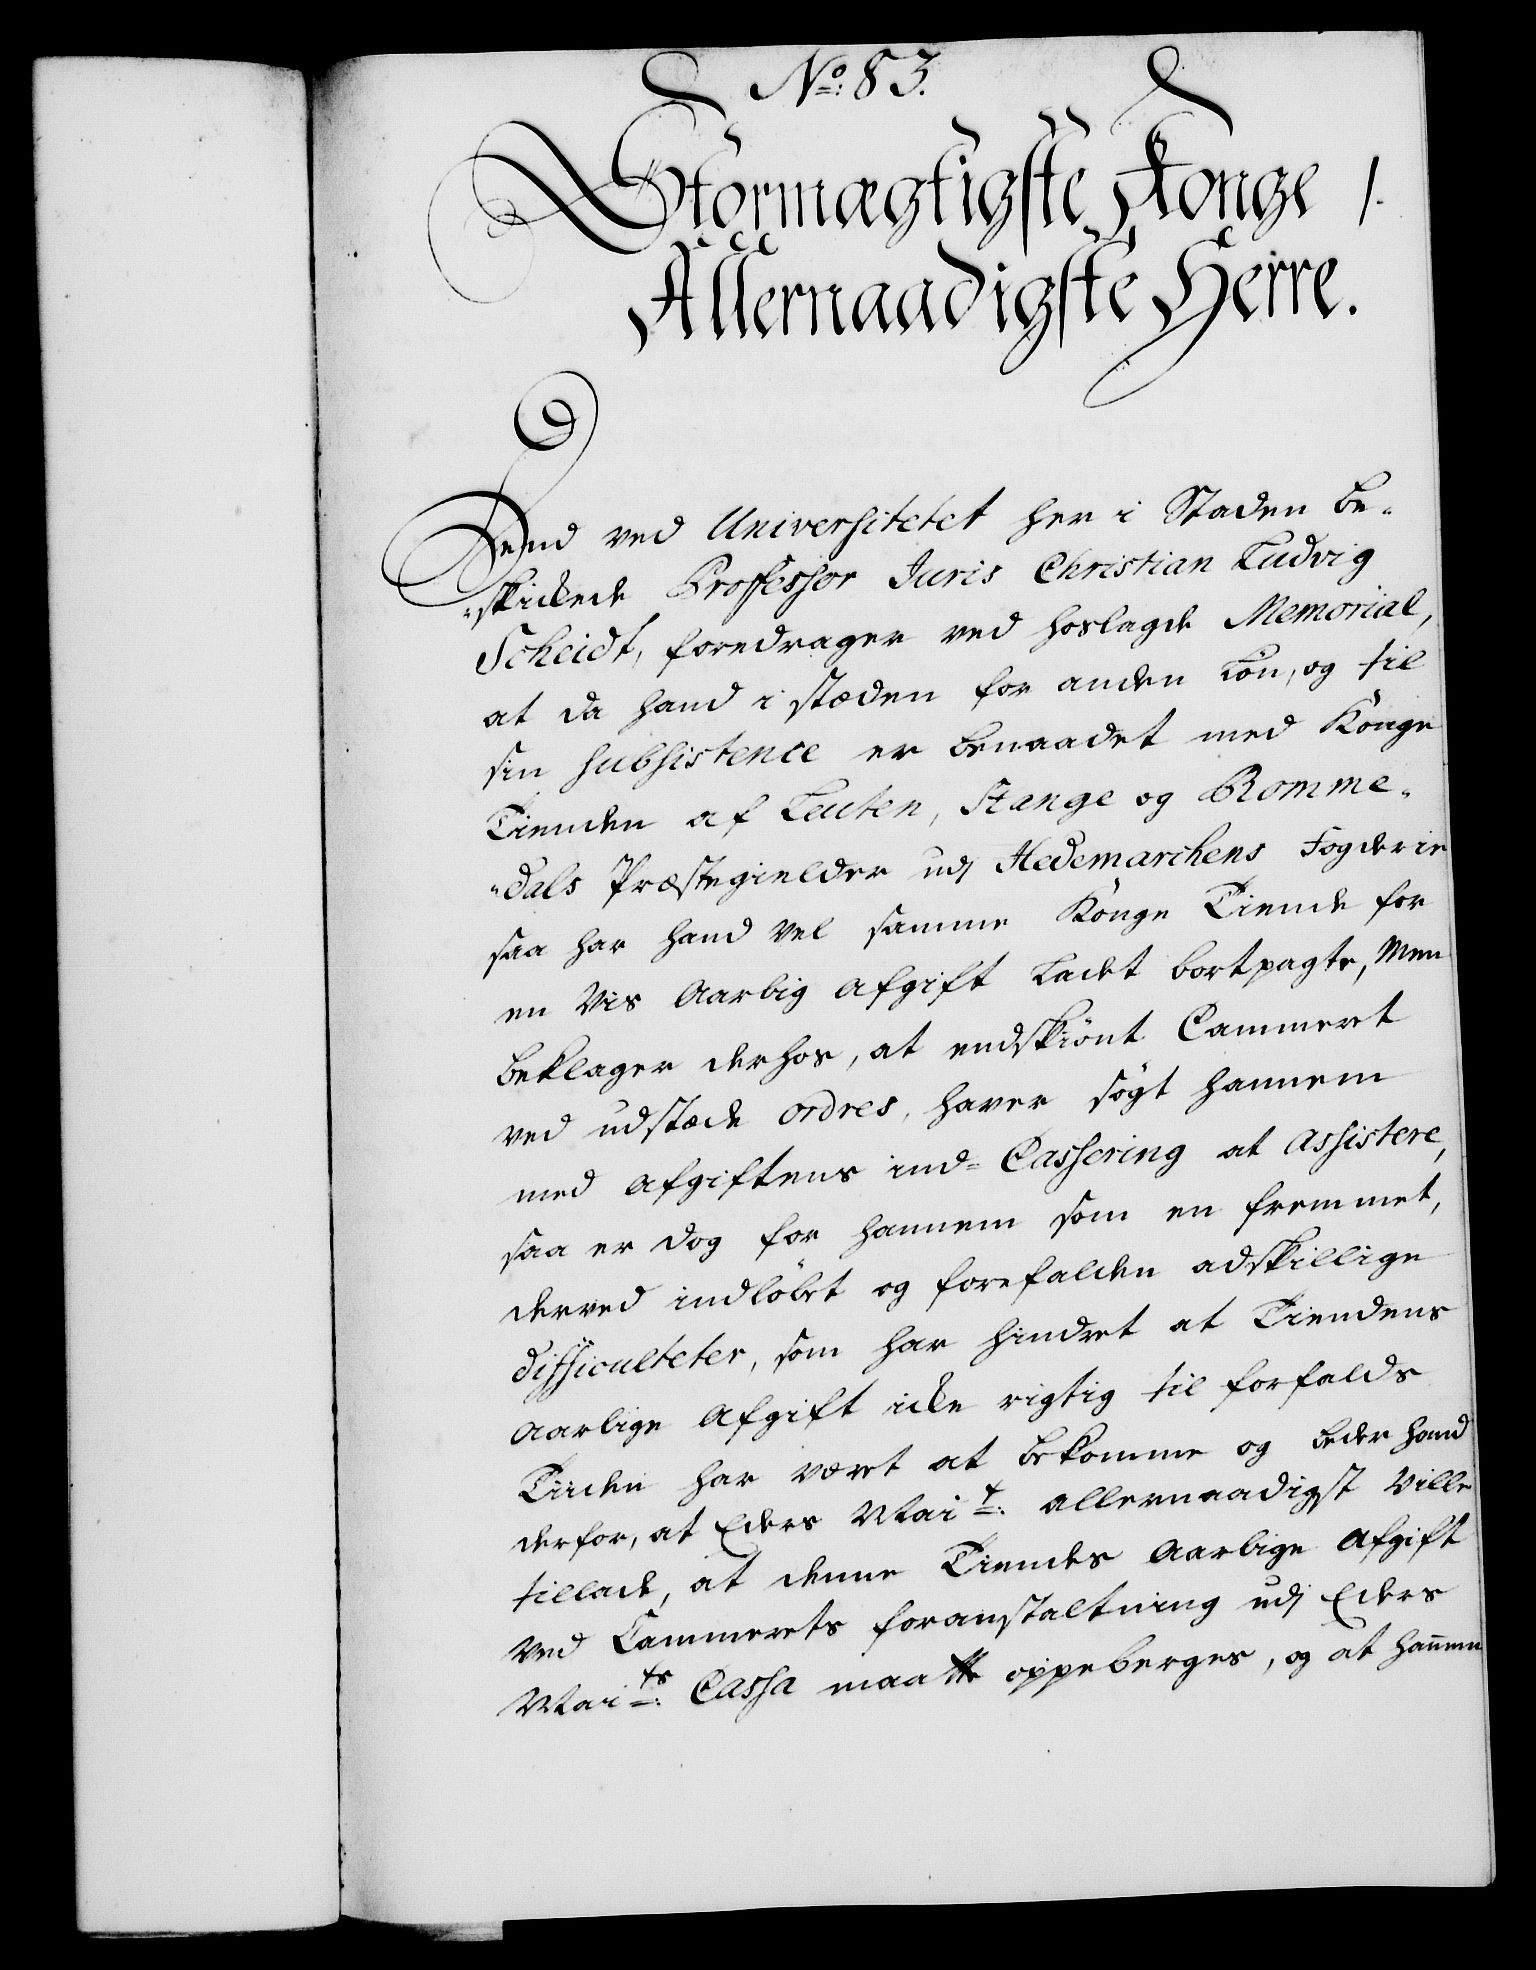 No: 83.
Stormægtigste Konge /.
Allernaadigste Herre.
Dend ved Universitetet her i Staden be-
-skickede Proffessor Juris Christian Ludvig
Scheidt, foredrager ved hoslagde Memorial,
at da hand i stæden for anden Løn, og til
sin Subsistence er benaadet med Konge
Tienden af Leuten, Stange og Romme-
-dals Præstegielder udj Hedemarchens Fogderie
saa har hand vel samme Konge Tiende for
en vis Aarlig Afgift ladet bortpagte, Men
beklager derhos, at endskiønt Cammeret
ved udstæde ordres, haver søgt hannem
med Afgiftens ind= Cassering at assistere,
saa er dog for hannem som en fremmet,
derved indløbet og forefalden adskillige
difficulteter, som har hindret at Tiendens
Aarlige Afgift icke rigtig til forfalds
Tiiden har været at bekomme og beder hand
derfor, at Eders Mait: allernaadigst Ville
tillade, at denne Tiendes Aarlige Afgift
ved Cammerets foranstaltning udj Eders
Maits: Cassa maatte oppeberges, og at hannem